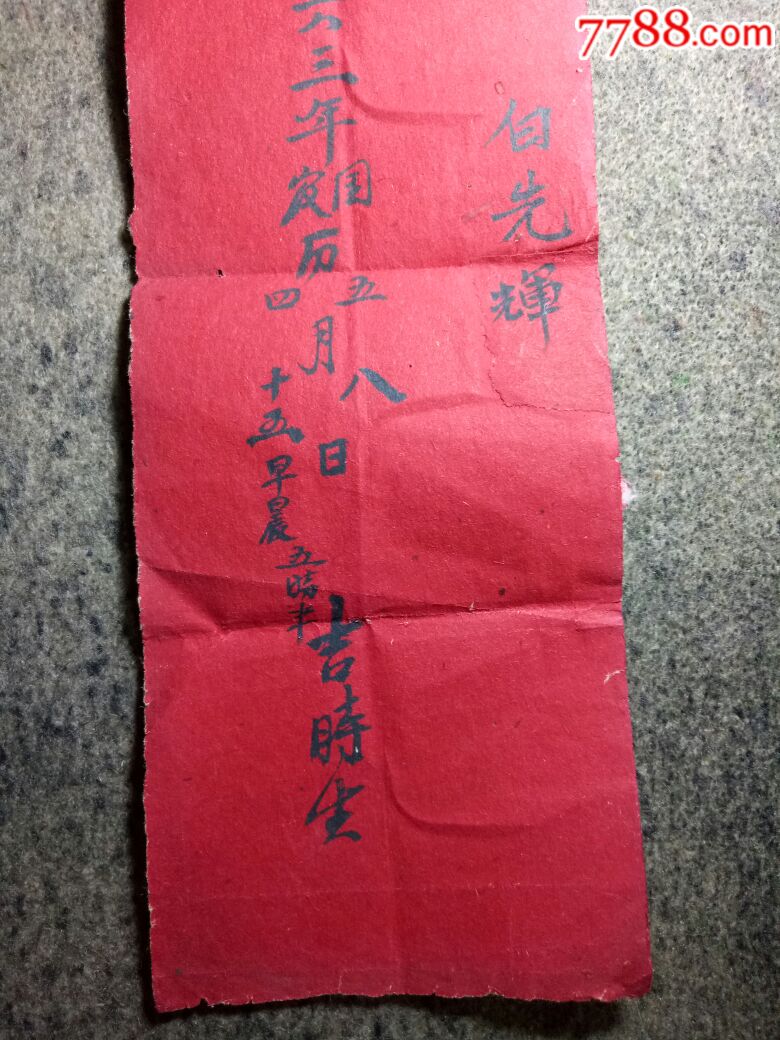 7788.com
白先輝
六三年国农历五四月八十五日早晨五時半吉時生